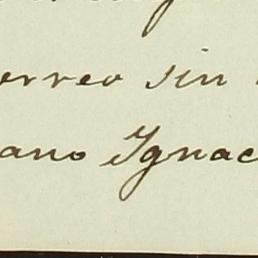 orreo sin
ano Ignac